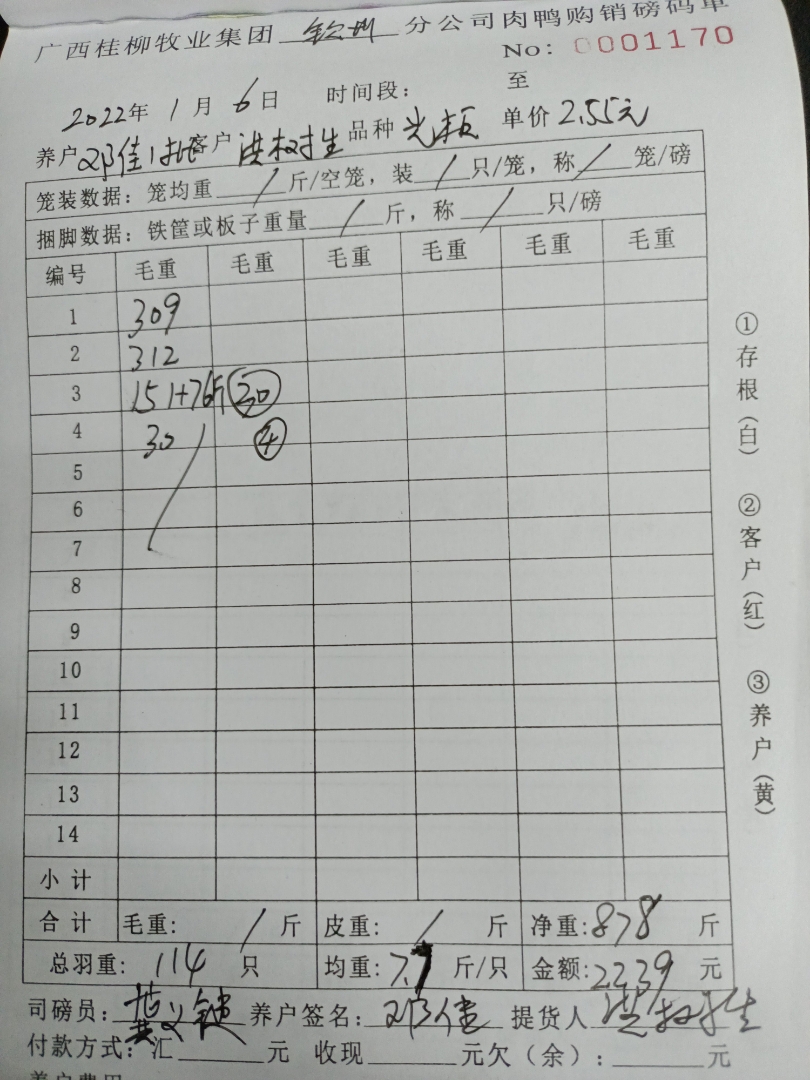 广西桂柳牧业集团 钦州 分公司肉鸭购销磅码单
No: 0001170
2022年 1月 6日 时间段: 至
养户 邓佳 客户 洪权生 品种 光板 单价 2.55元
笼装数据: 笼均重 / 斤/空笼, 装 / 只/笼, 称 / 笼/磅
捆脚数据: 铁筐或板子重量 / 斤, 称 / 只/磅
编号 毛重 毛重 毛重 毛重 毛重 毛重
1 309
2 312
3 151+76斤 30
4 30 4
5
6
7
8
9
10
11
12
13
14
小计
合计 毛重: / 斤 皮重: / 斤 净重: 878 斤
总羽重: 114 只 均重: 7.7 斤/只 金额: 2239 元
司磅员: 养户签名: 邓佳 提货人 洪权生
付款方式: 汇 元 收现 元欠(余): 元
养户费用
①存根(白) ②客户(红) ③养户(黄)